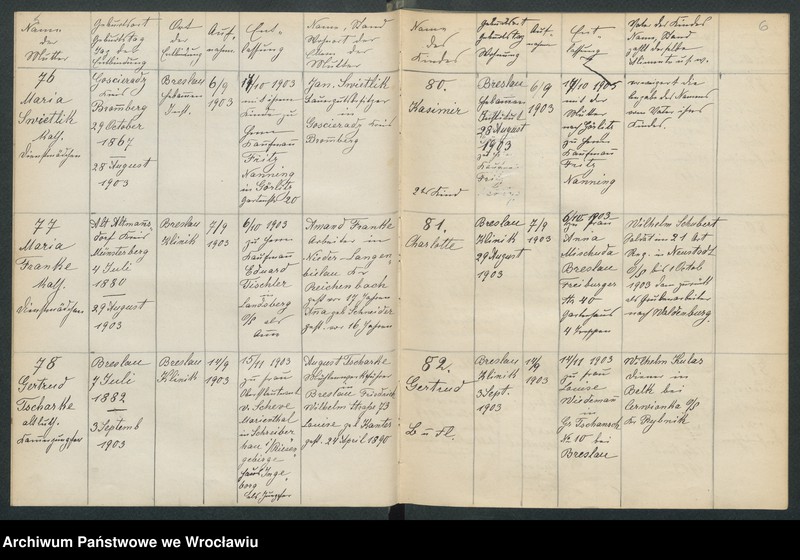 Name
der
Mutter
Geburtsort
Geburtstag
Tag der
Entbindung
Ort
der
Entbindung
Auf-
nahme
Ent-
lassung
Name, Stand
Wohnort der
Eltern der
Mutter
Name
des
Kindes
Geburtsort
Geburtstag
Wohnung
Auf-
nahme
Ent-
lassung
Vater des Kindes
Name, Stand
zahlt derselbe
Alimente u.s.w.
6
76
Maria
Swietlik
kath.
Dienstmädchen
Goscieradz
Kreis
Bromberg
29 October
1867
28 August
1903
Breslau
Hebammen
Inst.
6/9
1903
17/10 1903
mit ihrem
Kinde zu
Herrn
Kaufmann
Fritz
Nanning
in Görlitz
20
Jan. Swietlik
in
Goscieradz Kreis
Bromberg
80.
Kasimir
2tes Kind
Breslau
Hebammen
Institut
28 August
1903
6/9
1903
17/10 1903
mit der
Mutter
nach Görlitz
zu Herrn
Kaufmann
Fritz
Nanning
verweigert die
Angabe des Namens
vom Vater ihres
Kindes.
77
Maria
Franke
kath.
Dienstmädchen
Alt Altmanns-
dorf Kreis
Münsterberg
4 Juli
1880
29 August
1903
Breslau
Klinik
7/9
1903
6/10 1903
zu Herrn
Kaufmann
Eduard
Tischler
Landsberg
O/S als
Amme
Amand Franke
Arbeiter in
Nieder-Langen-
bielau Kr.
Reichenbach
gest. vor 17 Jahren
Anna geb. Schneider
gest. vor 16 Jahren
81.
Charlotte
Breslau
Klinik
29 August
1903
7/9
1903
6/10 1903
zu Frau
Anna
Mischuda
Breslau
Freiburger
Str 40
Gartenhaus
4 Treppen
Wilhelm Schubert
Soldat im 21 Art
Reg. in Neustadt
O/S bis 1 Octob.
1903 dann zurück
als Grubenarbeiter
nach Waldenburg.
78
Gertrud
Tscharke
altluth.
Kammerjungfer
Breslau
7 Juli
1882
3 Septemb
1903
Breslau
Klinik
14/9
1903
15/11 1903
zu Frau
v. Scheve
Marienthal
in Schreiber-
hau "Riesen-
gebirge"
Haus Inge-
borg
als Jungfer
August Tscharke
Breslau Friedrich
Wilhelm Straße 73
Louise geb. Kanter
gest. 24 April 1890
82.
Gertrud
Breslau
Klinik
3 Sept.
1903
14/9
1903
14/11 1903
zu Frau
Louise
Wiedemann
in
Gr Tschansch
No 10 bei
Breslau
Wilhelm Kulas
Diener in
Belk bei
Czerwionka O/S
Kr. Rybnik
Archiwum Państwowe we Wrocławiu